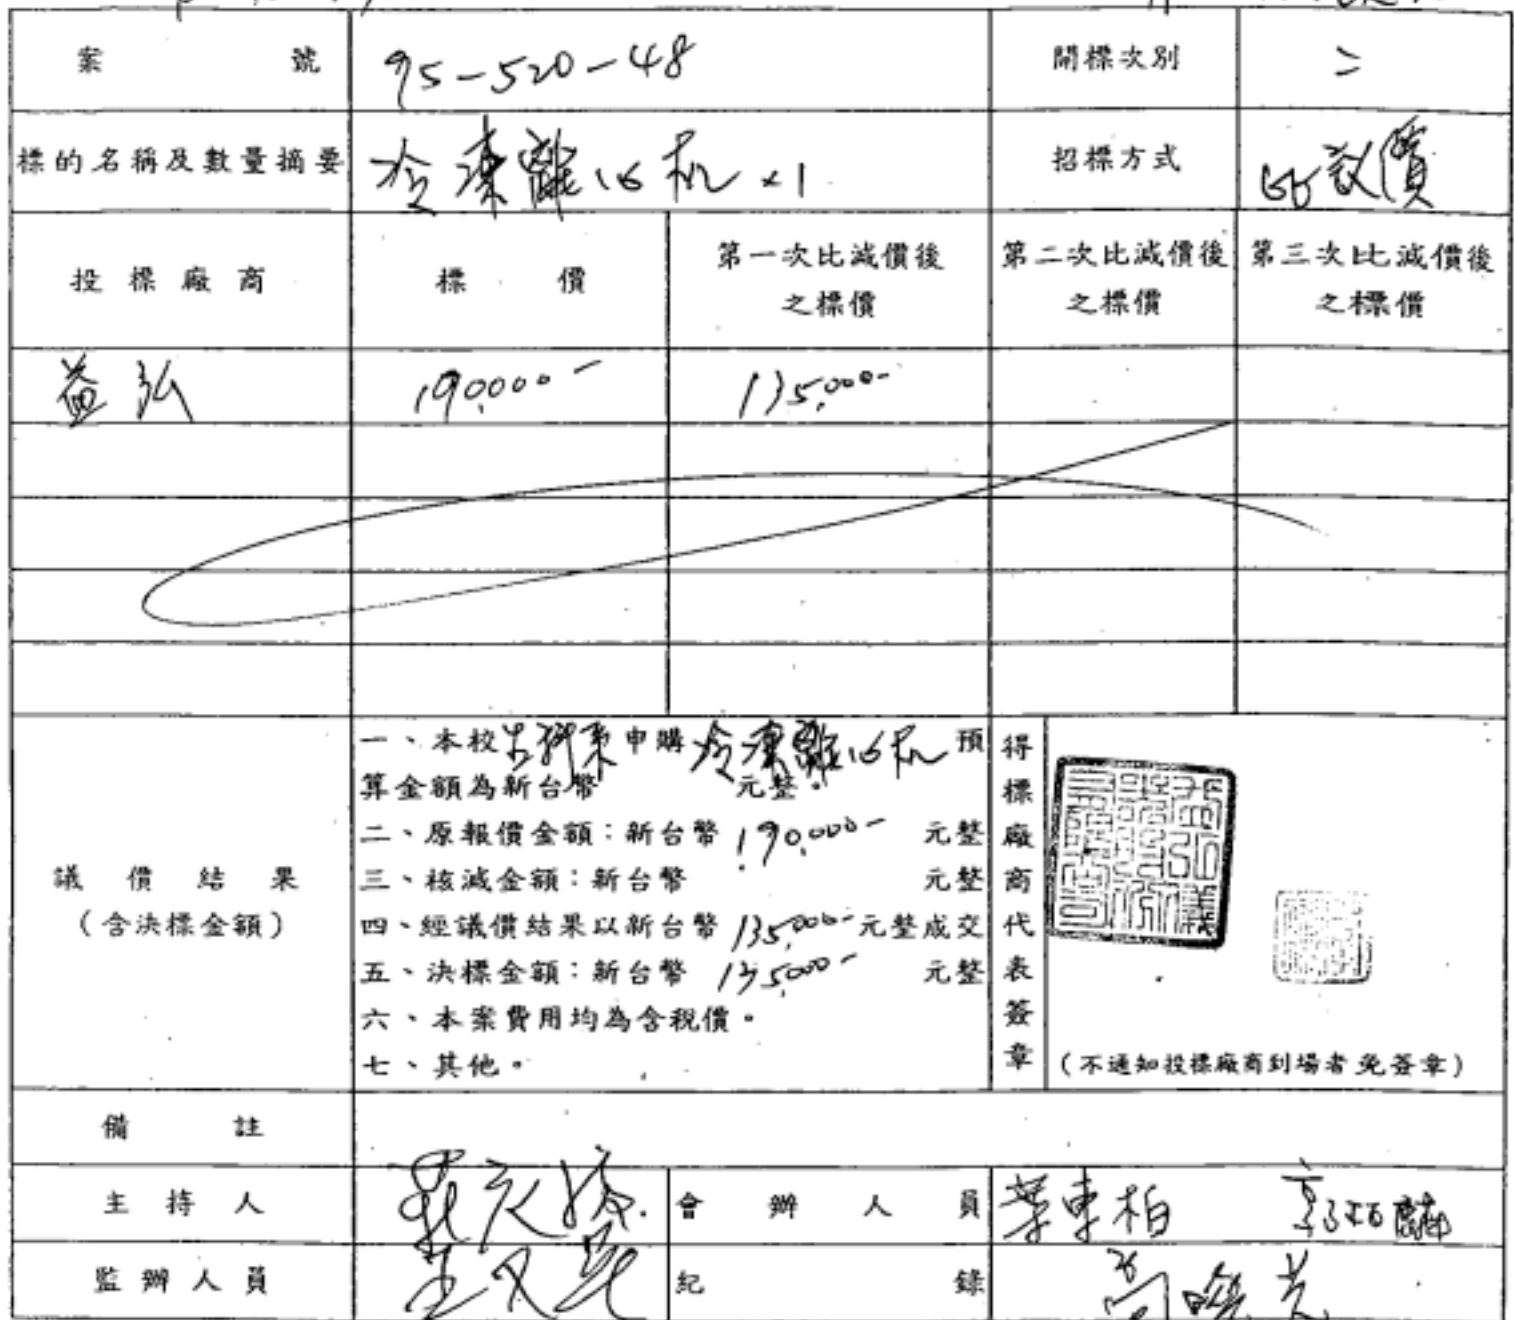 案號 95-520-48 開標次別 二
標的名稱及數量摘要 冷凍離心机 x1 招標方式 比議價
投標廠商 標價 第一次比減價後之標價 第二次比減價後之標價 第三次比減價後之標價
益弘 190,000- 135,000-
議價結果
(含決標金額)
一、本校生科系申購冷凍離心机預
算金額為新台幣 元整。
二、原報價金額：新台幣 190,000- 元整
三、核減金額：新台幣 元整
四、經議價結果以新台幣 135,000- 元整成交
五、決標金額：新台幣 135,000- 元整
六、本案費用均為含稅價。
七、其他。
得標廠商代表簽章
(不通知投標廠商到場者免簽章)
備註
主持人 會辦人員 葉東柏
監辦人員 紀錄